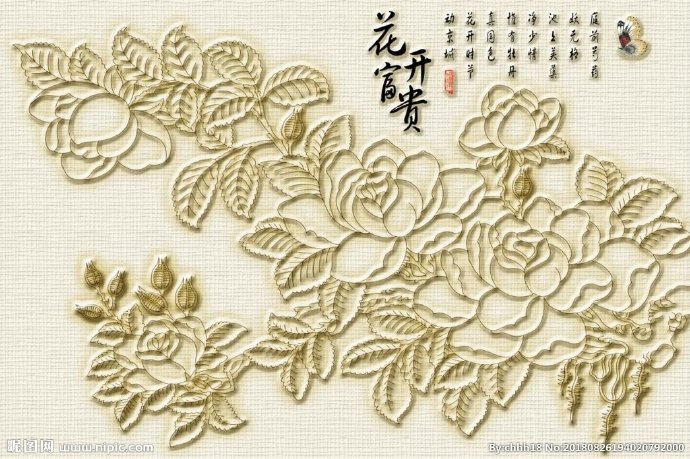 花开富贵
庭前芍药
妖无格
池上芙蕖
净少情
惟有牡丹
真国色
花开时节
动京城
昵图网 www.nipic.com
By:chhh18 No:20180826194020792000